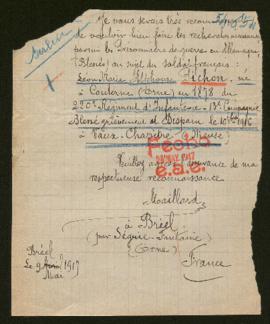 Je vous serais très reconnaissant
de vouloir bien faire les recherches nécessaires
parmi les Prisonniers de guerre en Allemagne
(Blessés) au sujet du soldat français :
Léon Marie Alphonse Pichon, né
à Couterne (Orne) en 1878 du
220e Régiment d'Infanterie - 13e Compagnie
Blessé grièvement et Disparu le 10 1916
à Vaux-Chapitre (Meuse)
Veuillez agréer assurance de ma
respectueuse reconnaissance
Maillard
à Bréel
(par Ségrie-Fontaine)
(Orne)
France
Bréel
Le 9 Avril 1917
Mai
1917
e.a.e.